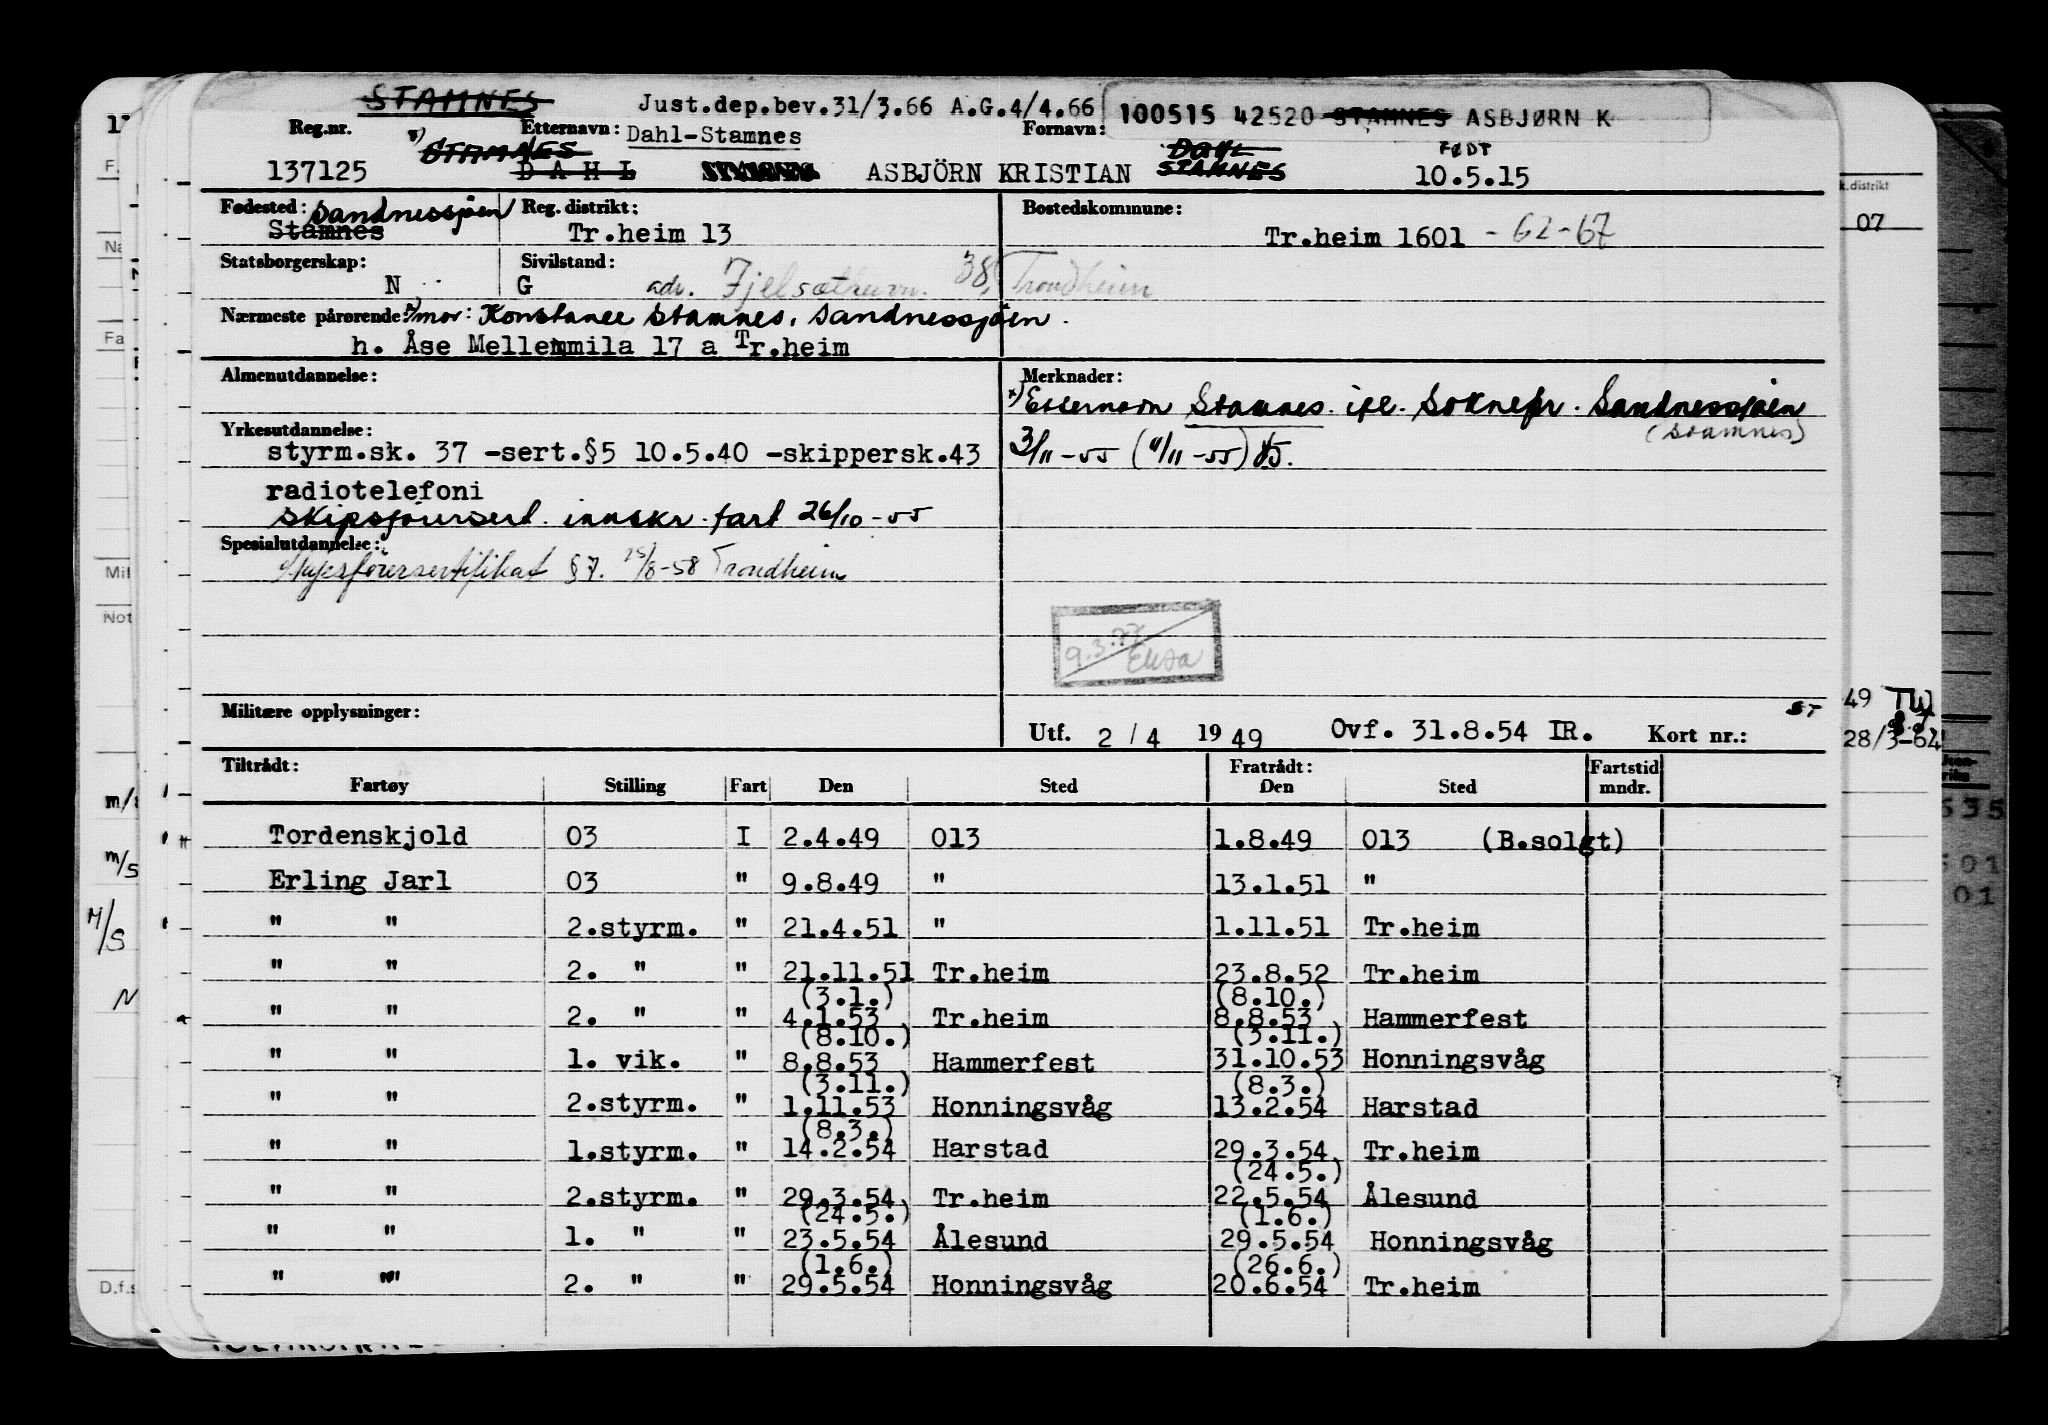 STAMNES Just.dep.bev.31/3.66 A.G.4/4.66 100515 42520 STAMNES ASBJØRN K
Reg.nr. Etternavn: Dahl-Stamnes Fornavn:
x) STAMNES DAHL FØDT
137125 DAHL ASBJÖRN KRISTIAN STAMNES 10.5.15
Fødested: Sandnessjøen Reg. distrikt: Bostedskommune:
Stamnes Tr.heim 13 Tr.heim 1601 - 62-67
Statsborgerskap: Sivilstand:
N G adr. 38, Trondheim
Nærmeste pårørende: mor: Konstanse Stamnes, Sandnessjøen
h. Åse Mellemmila 17 a Tr.heim
Almenutdannelse: Merknader:
x) Etternavn Stamnes ifl. Soknepr. Sandnessjøen
(Stamnes)
Yrkesutdannelse: 3/11-55 (4/11-55)
styrm.sk. 37 -sert.§5 10.5.40 -skippersk.43
radiotelefoni
Skipsførersert. innskr. fart 26/10-55
Spesialutdannelse:
Skipsførersertifikat §7. 25/8-58 Trondheim
9.3.77
Elisa
Militære opplysninger: ST
Utf. 2 / 4 1949 Ovf. 31.8.54 IR. Kort nr.:
Tiltrådt: Fratrådt: Fartstid
Fartøy Stilling Fart Den Sted Den Sted mndr.
Tordenskjold 03 I 2.4.49 013 1.8.49 013 (B.solgt)
Erling Jarl 03 " 9.8.49 " 13.1.51 "
" " 2.styrm. " 21.4.51 " 1.11.51 Tr.heim
" " 2. " " 21.11.51 Tr.heim 23.8.52 Tr.heim
(3.1.) (8.10.)
" " 2. " " 4.1.53 Tr.heim 8.8.53 Hammerfest
(8.10.) (3.11.)
" " 1. vik. " 8.8.53 Hammerfest 31.10.53 Honningsvåg
(3.11.) (8.3.)
" " 2.styrm. " 1.11.53 Honningsvåg 13.2.54 Harstad
(8.3.)
" " 1.styrm. " 14.2.54 Harstad 29.3.54 Tr.heim
(24.5.)
" " 2.styrm. " 29.3.54 Tr.heim 22.5.54 Ålesund
(24.5.) (1.6.)
" " 1. " " 23.5.54 Ålesund 29.5.54 Honningsvåg
(1.6.) (26.6.)
" " 2. " " 29.5.54 Honningsvåg 20.6.54 Tr.heim
k.distrikt
07
49 TW
28/3-64
535
501
01
Mil
Not
m/s
M/S
N
D.f.s